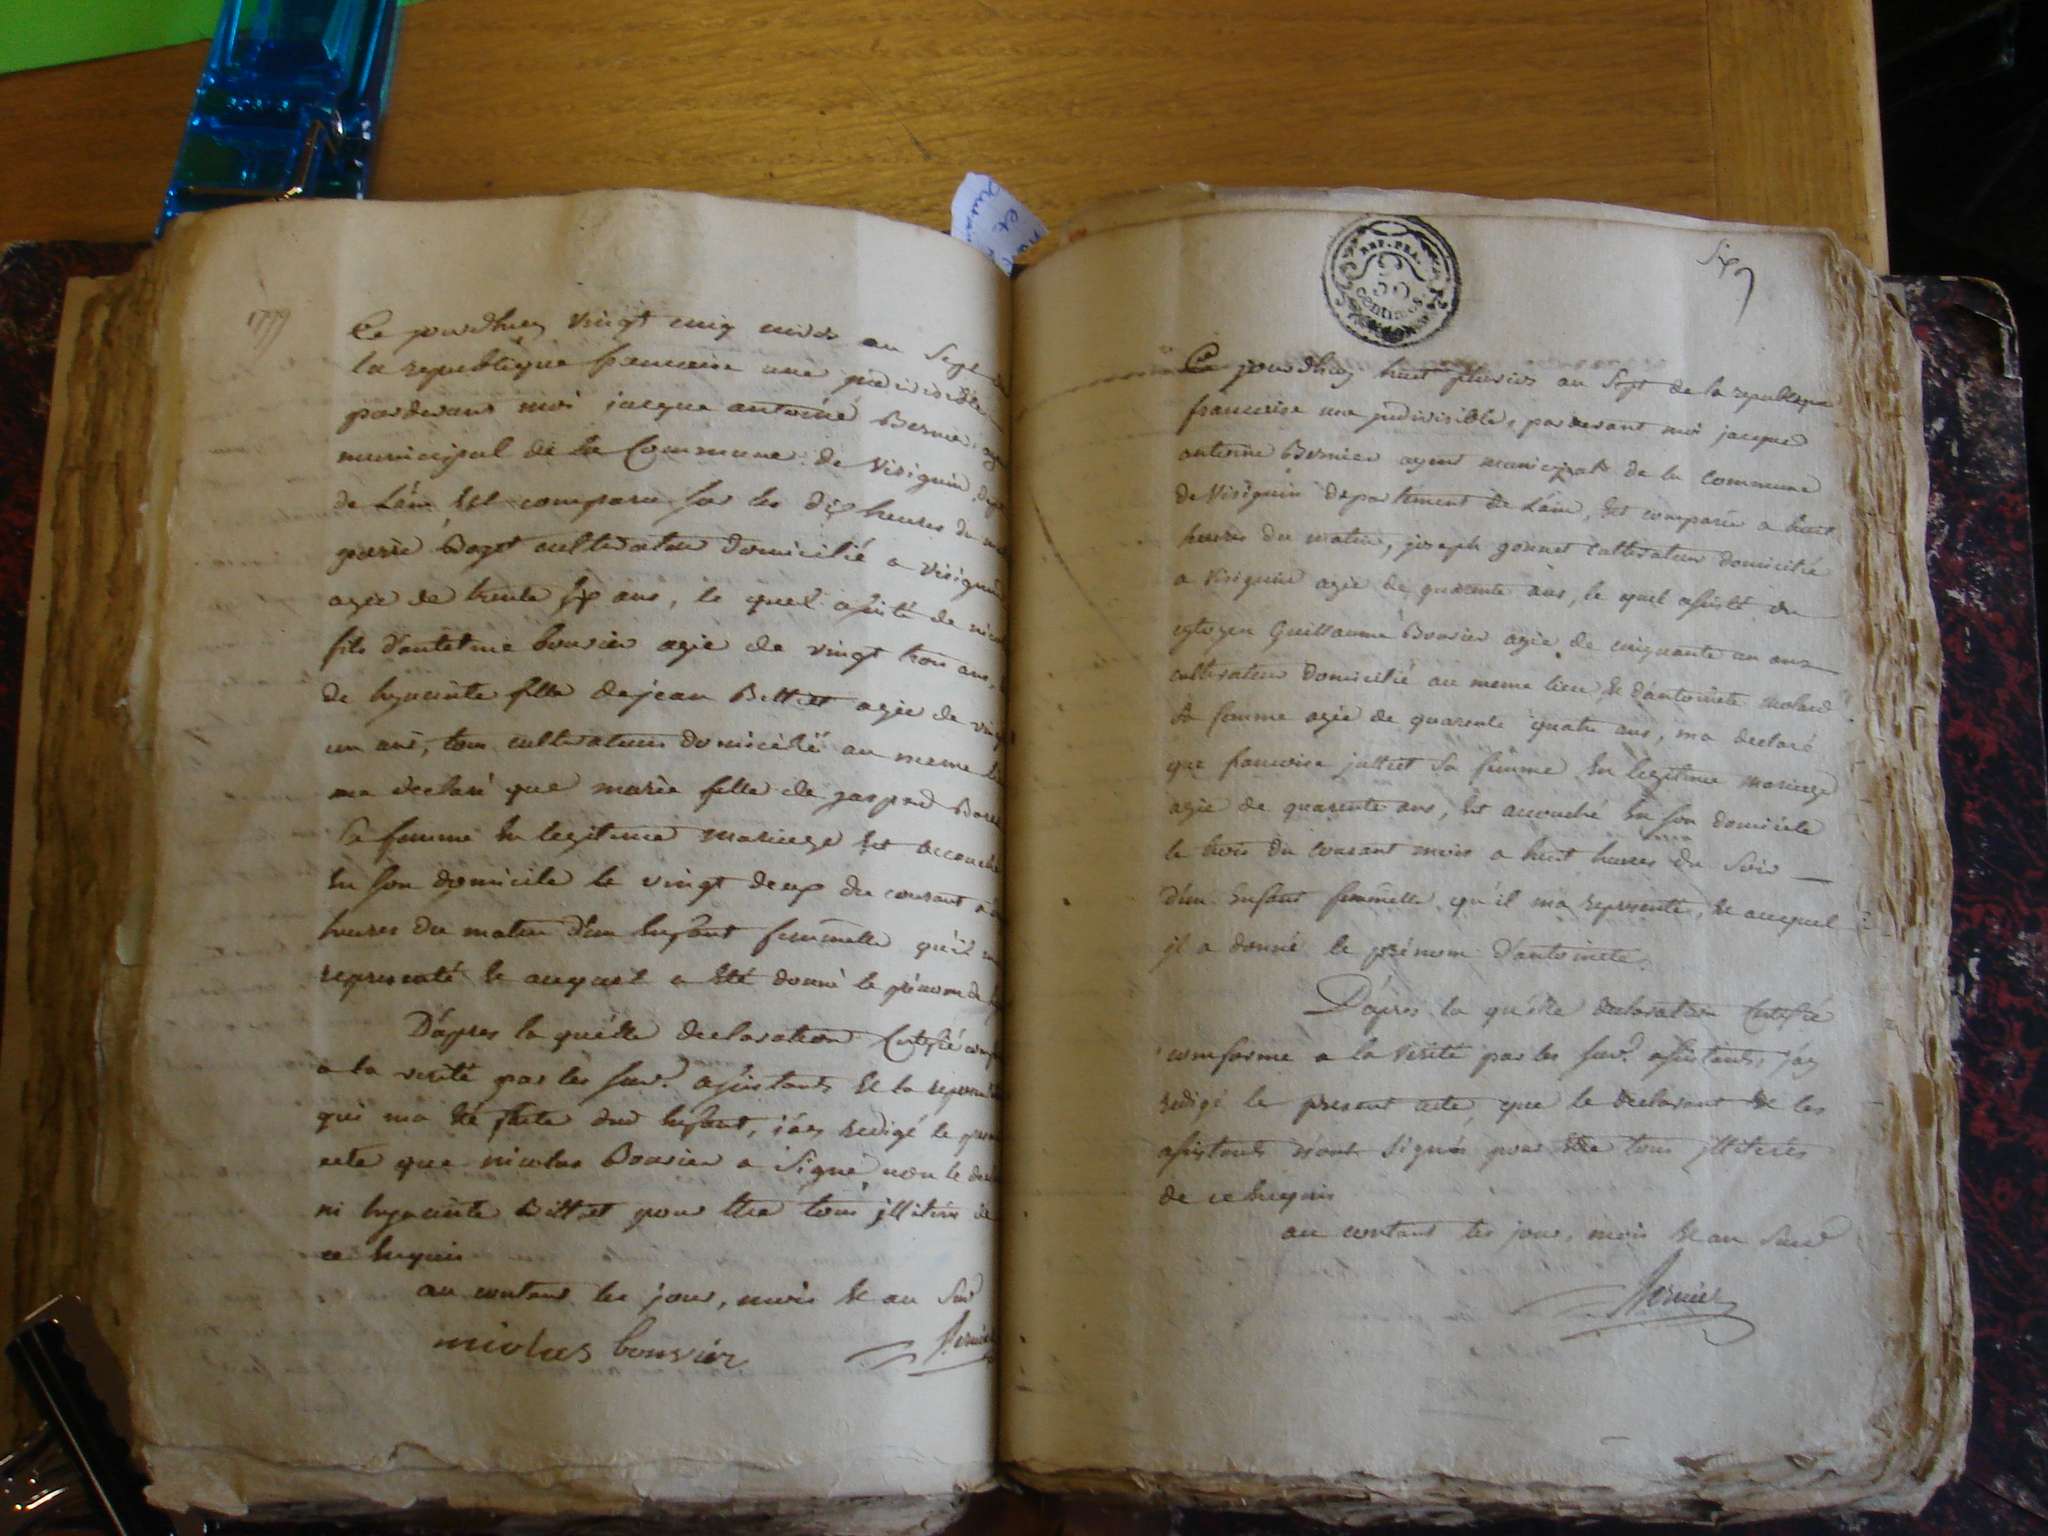 1779
Ce jourdhuy vingt cinq nivos an Sept de
la republique francaise une jndivisible
pardevant moi jacque antoine Bernier
municipal de la Commune de Visignin
de Lain Est comparu sur les dix heures du
pierre Boget cultivateur domicilié a Visignin
agée de trente six ans, le quel assisté de
fils d'antelme bouvier agée de vingt trois ans,
de hyacinte fille de jean Billiet agée de vingt
un ans, tous cultivateurs domicilié au meme
ma declaré que marie fille de gaspard
sa femme En legitime mariage Est accouché
En son domicile le vingt deux du courant a
heures du matin d'un Enfant femmelle qu'il
representé Et auquel a Eté donné le prenom de
D'apres la quelle declaration Certifié
a la verité par les susd. assistants Et la
qui ma Eté faite dud Enfant, j'ay redigé le
acte que nicolas Bouvier a Signé non le
ni hyacinte Billiet pour Etre tous jlliteré
ce Enquis
au contant les jour, mois Et an Susd
nicolas bouvier Bernier
REP. FRA.
centimes.
Six
Ce jourdhuy huit pluvios an Sept de la republique
francaise une jndivisible, pardevant moi jacque
antoine Bernier agent municipal de la commune
de Visignin departement de Lain, Est comparu a huit
heures du matin, joseph gonnet Cultivateur domicilié
a Visignin agée de quarente ans, le quel assisté du
cytoyen Guillaume Bouvier agée de cinquante un ans
cultivateur domicilié au meme lieu Et d'antoinete Molard
sa femme agée de quarente quatre ans, ma declaré
que francoise julliet sa femme En legitime mariage
agée de quarente ans, Est accouché En son domicile
le trois du courant mois a huit heures du Soir
d'un Enfant femmelle qu'il ma representé, Et auquel
il a donné le prénom d'antoinete.
D'apres la quelle declaration Certifié
conforme a la Verité par les susd. assistants, j'ay
redigé le present acte, que le declarant Et les
assistants n'ont Signés pour Etre tous jlliterés
de ce Enquis
au contant les jour, mois Et an Susd
Bernier